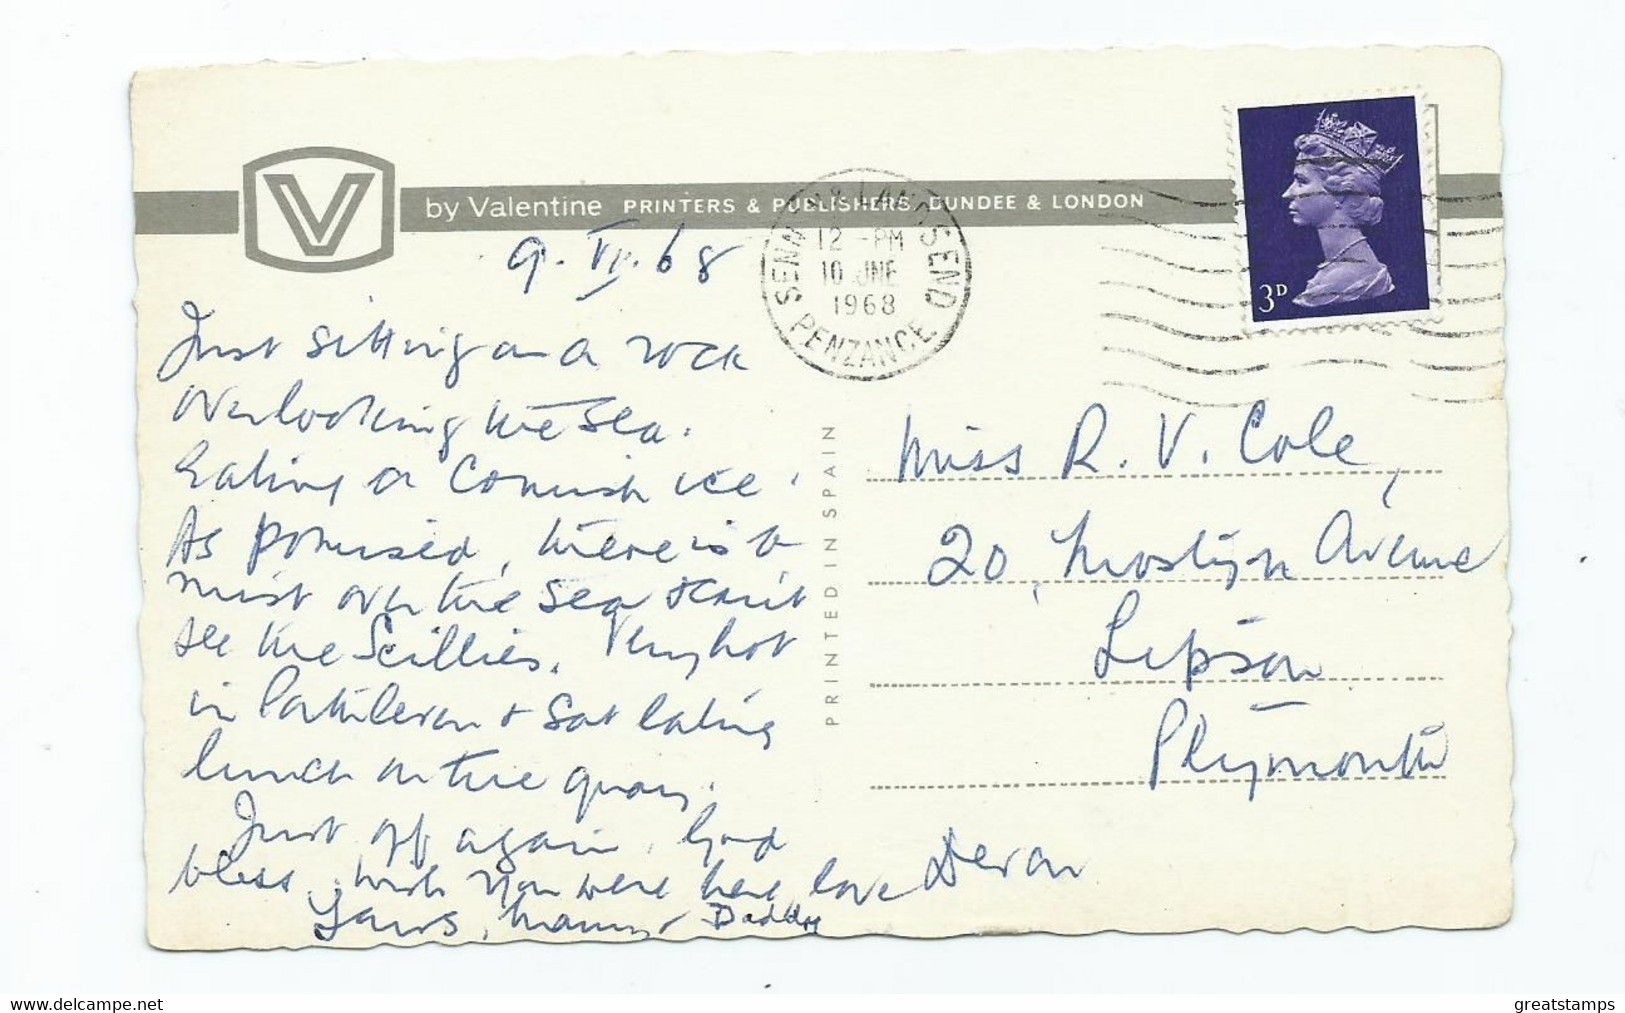 V by Valentine PRINTERS & PUBLISHERS, DUNDEE & LONDON
9.VI.68
SENNEN & LANDS END
12 - PM
10 JNE
1968
PENZANCE
3D
Just sitting on a rock
overlooking the sea.
Eating a Cornish ice.
As promised, there is a
mist over the sea & can't
see the Scillies. Very hot
in Porthleven & sat eating
lunch on the quay.
Just off again. God
bless, wish you were here, love
Mammy & Daddy
PRINTED IN SPAIN
Miss R. V. Cole,
20, Mostyn Avenue
Lipson
Plymouth
Devon
www.delcampe.net
greatstamps